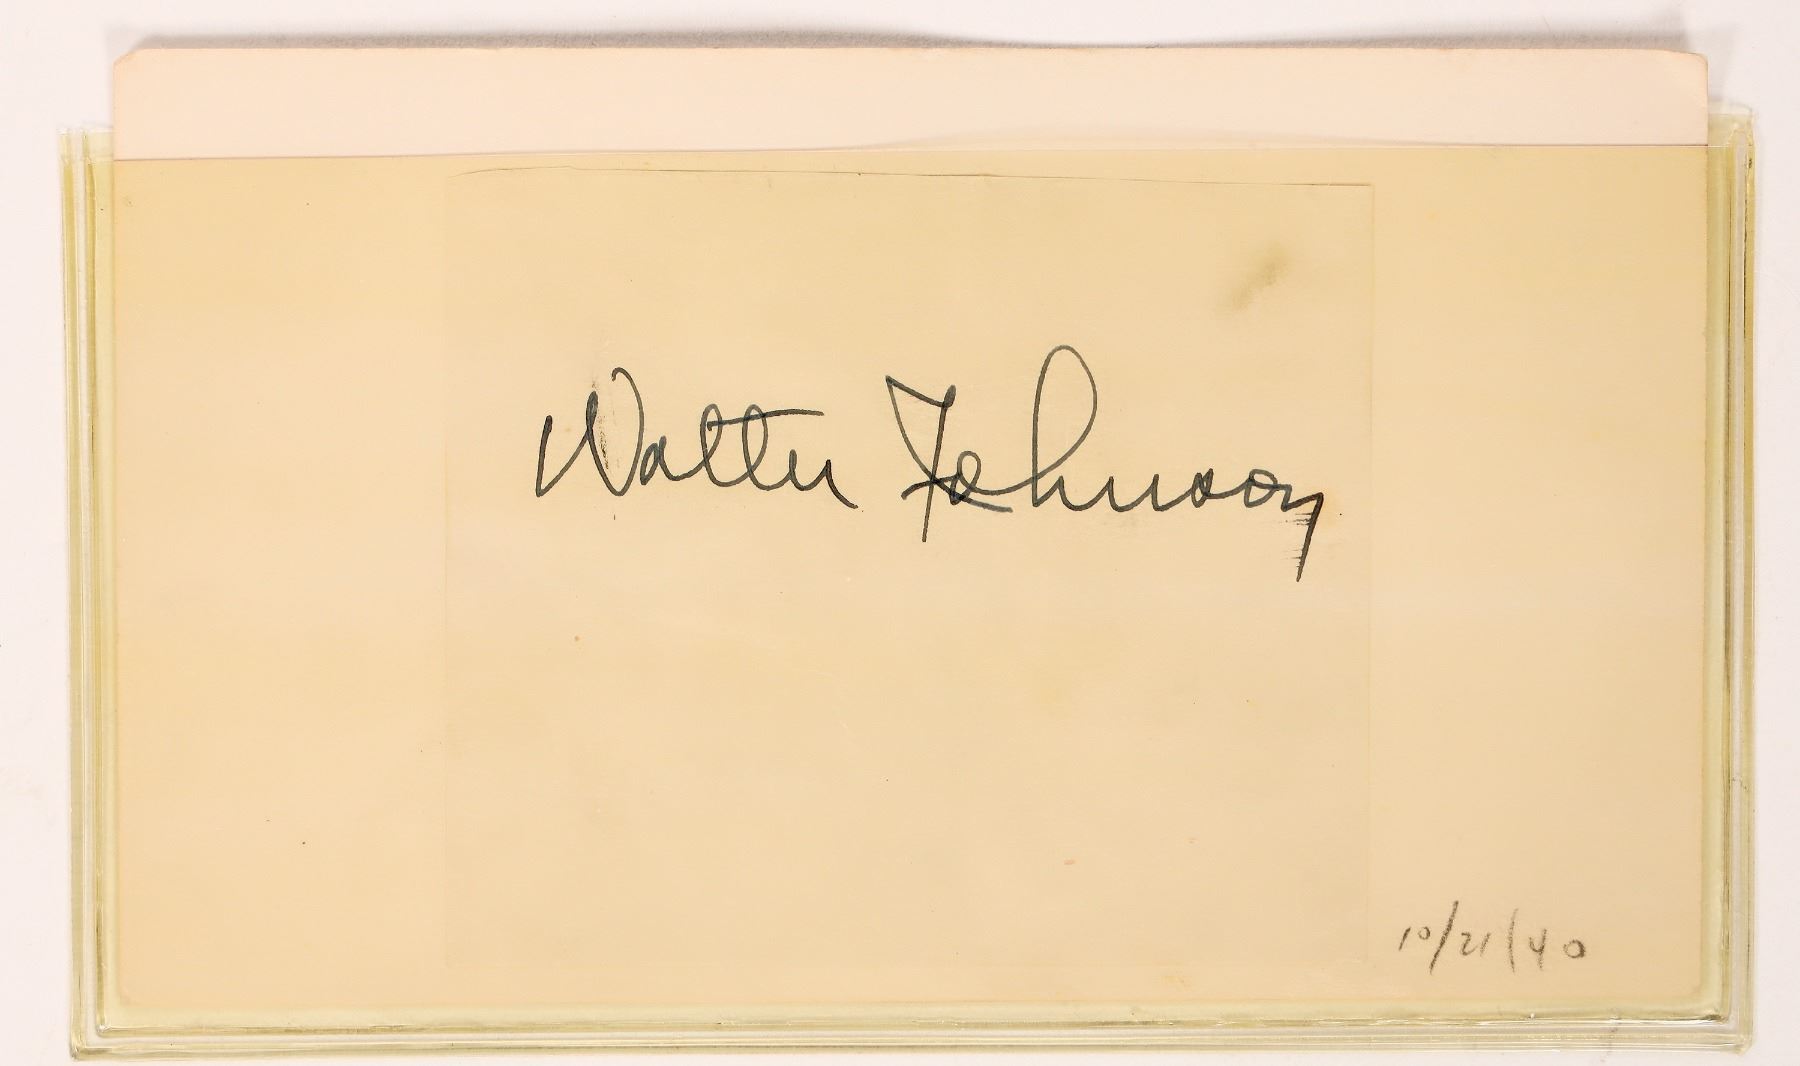 Walter Johnson
10/21/40